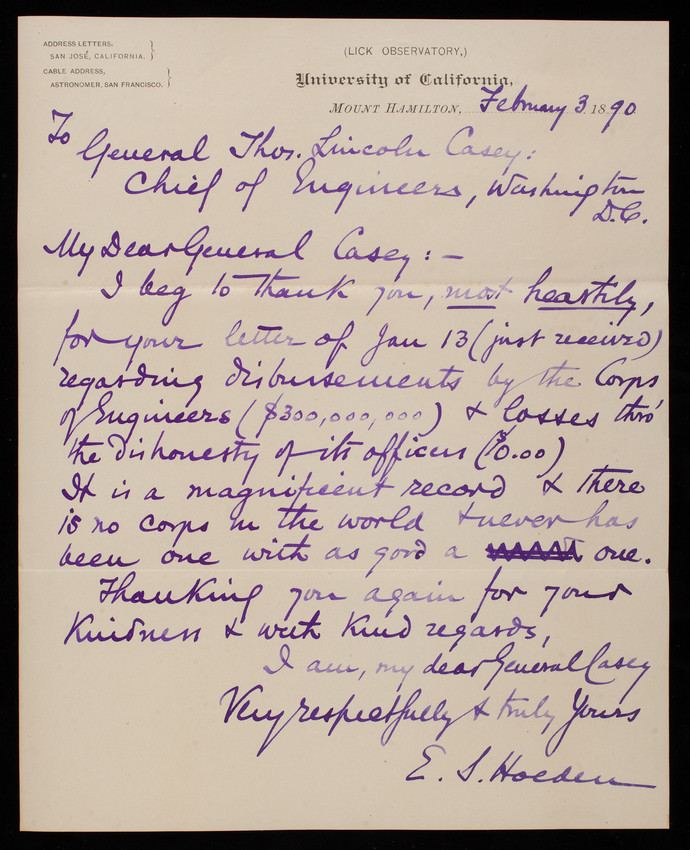 ADDRESS LETTERS,
SAN JOSÉ, CALIFORNIA.
CABLE ADDRESS,
ASTRONOMER, SAN FRANCISCO.
(LICK OBSERVATORY,)
University of California,
MOUNT HAMILTON, February 3 1890
To
General Thos. Lincoln Casey:
Chief of Engineers, Washington
D.C.
My Dear General Casey: —
I beg to thank you, most heartily,
for your letter of Jan 13 (just received)
regarding disbursements by the Corps
of Engineers ($300,000,000) & losses thro'
the Dishonesty of its officers ($0.00)
It is a magnificent record & there
is no corps in the world & never has
been one with as good a one.
Thanking you again for your
Kindness & with Kind regards,
I am, my dear General Casey
Very respectfully & truly Yours
E. S. Holden